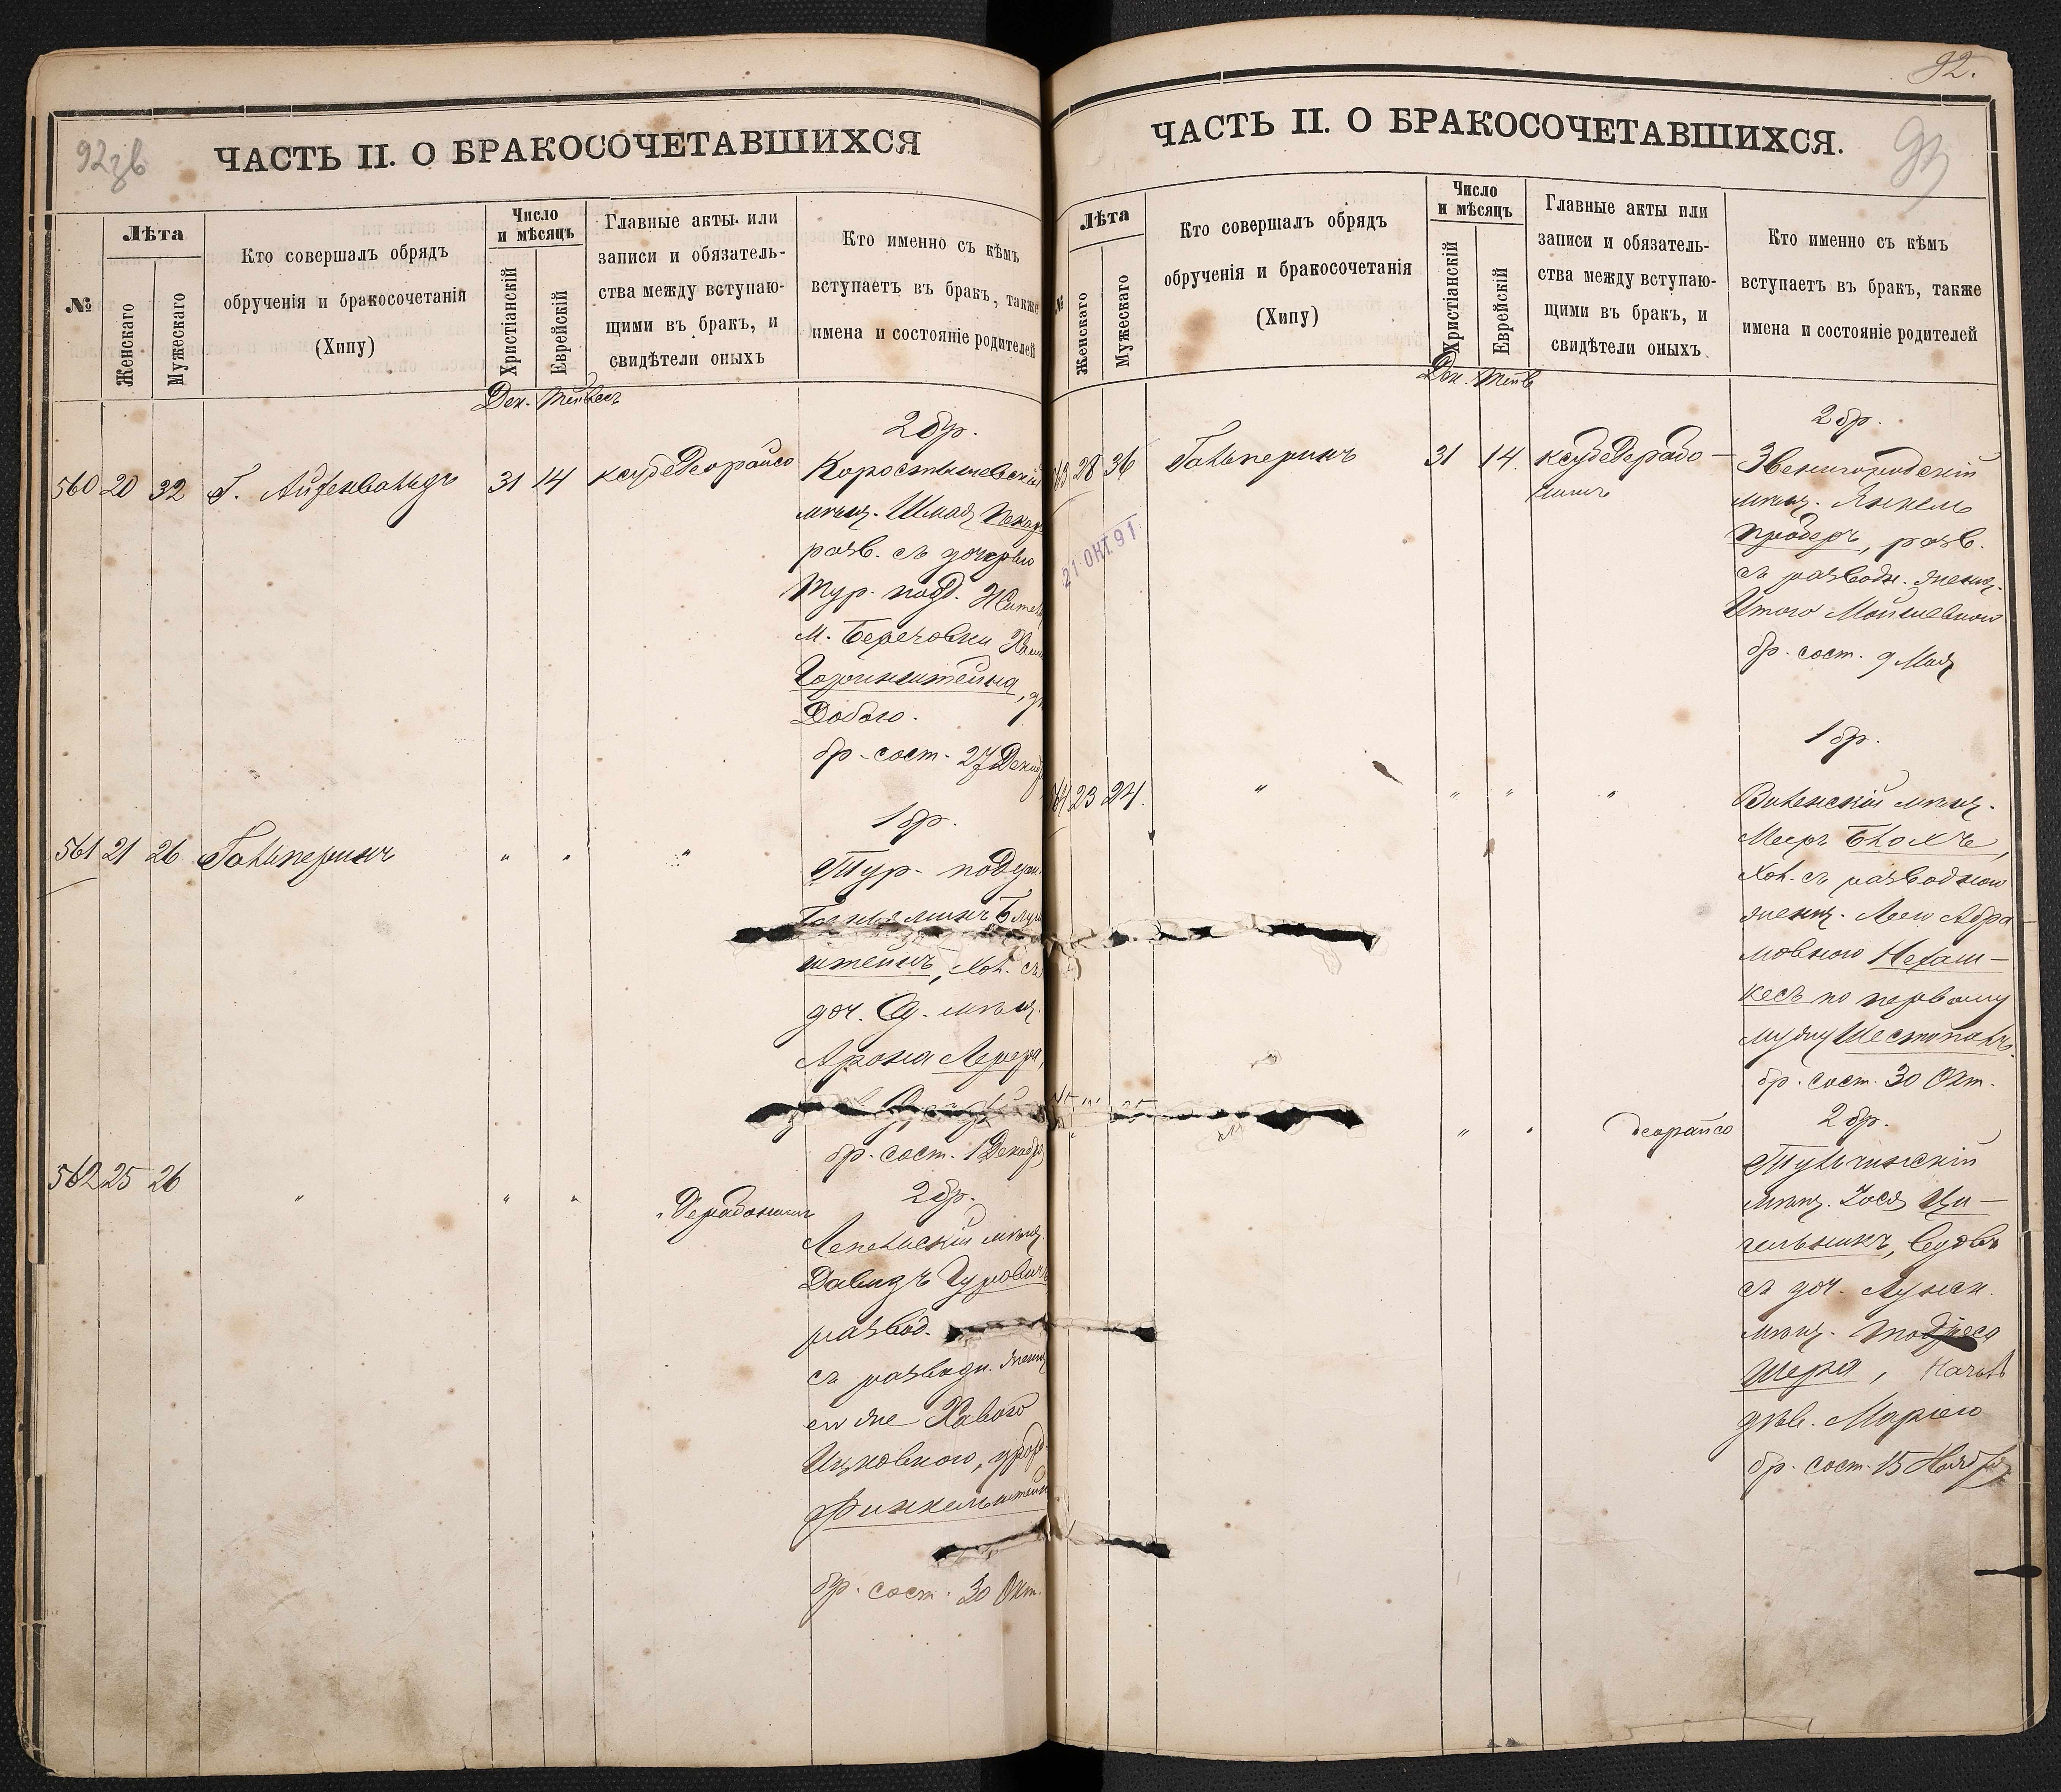 92зв
ЧАСТЬ II. О БРАКОСОЧЕТАВШИХСЯ
№
Лѣта
Женскаго
Мужескаго
Кто совершалъ обрядъ
обрученія и бракосочетанія
(Хипу)
Число
и мѣсяцъ
Христіанскій
Еврейскій
Главные акты или
записи и обязатель-
ства между вступаю-
щими въ бракъ, и
свидѣтели оныхъ
Кто именно съ кѣмъ
вступаетъ въ бракъ, также
имена и состояніе родителей
Дек.
2 бр.
560 20 32 Г. 31 14 ксубе Деорайсо Коростышевскій
мѣщ. Шмая
разв. съ дочерью
Тур. подд.
м. Березовки
Горинштейна,
Добою.
бр. сост. 27 Декаб
1 бр.
561 21 26 Гальперинъ " " "
Тур. поддан.
Беньяминъ
штейнъ, Хол. съ
доч. Од. мѣщ.
Арона Лерера,
бр. сост. 1 Декабря
562 25 26 " " " " Дерабононъ
2 бр.
Лепельскій мѣщ.
Давидъ Гуровичъ
развод.
съ разводн. женщ
ею же Хавою
Ицковною, урож.
Финкельштейн
бр. сост. 30 Окт.
92.
93
ЧАСТЬ II. О БРАКОСОЧЕТАВШИХСЯ.
№
Лѣта
Женскаго
Мужескаго
Кто совершалъ обрядъ
обрученія и бракосочетанія
(Хипу)
Число
и мѣсяцъ
Христіанскій
Еврейскій
Главные акты или
записи и обязатель-
ства между вступаю-
щими въ бракъ, и
свидѣтели оныхъ
Кто именно съ кѣмъ
вступаетъ въ бракъ, также
имена и состояніе родителей
Дек. Тейв
2 бр.
63 28 36 Гальперинъ 31 14. ксубе Дерабо-
нинъ
Звенигородскій
мѣщ. Янкель
Пробер, разв.
съ разводн. женщ.
Итою Мошковною
бр. сост. 9 Мая
21. ОКТ. 91
1 бр.
64 23 24. " " " "
Виленскій мѣщ.
Мееръ Блохъ,
Хол. съ разводною
женщ. Леею Абра-
мовною Нехаш-
кесъ по первому
мужу Шестопалъ.
бр. сост. 30 Окт.
2 бр.
" " деорайсо
Тульчинскій
мѣщ. Іося Ци-
гельникъ, Вдовъ
съ доч.
мѣщ.
Шера,
дѣв. Маріею
бр. сост. 15 Ноября